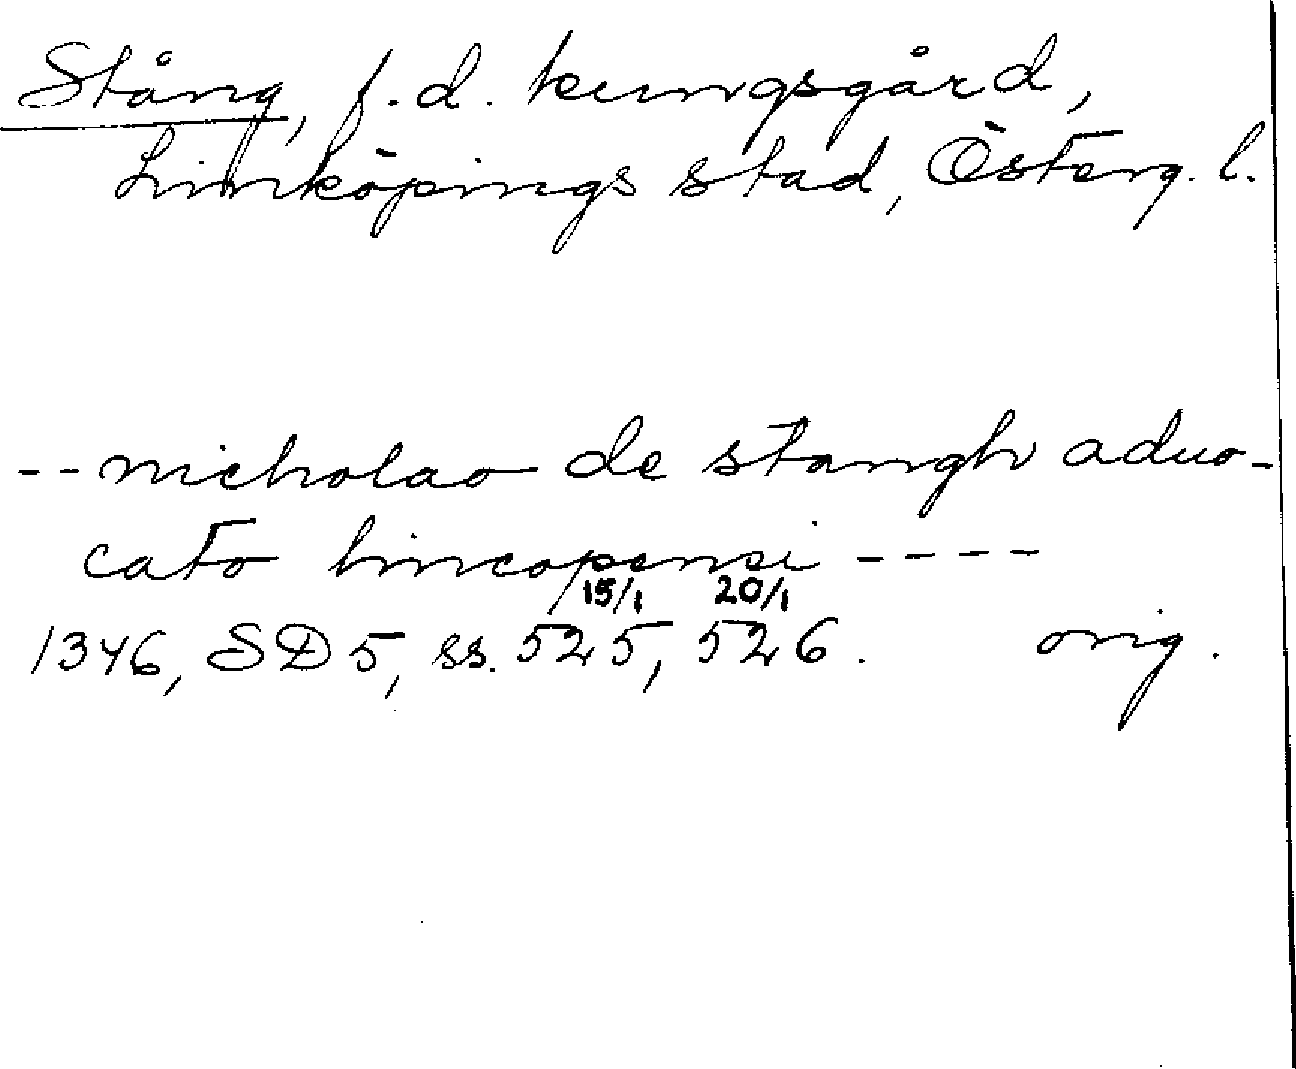 Stång, f.d. kungsgård,
Linköpings stad, Österg. l.
-- nicholao de stangh aduo-
cato lincopensi ----
15/1 20/1
1346, SD 5, ss. 525, 526. orig.